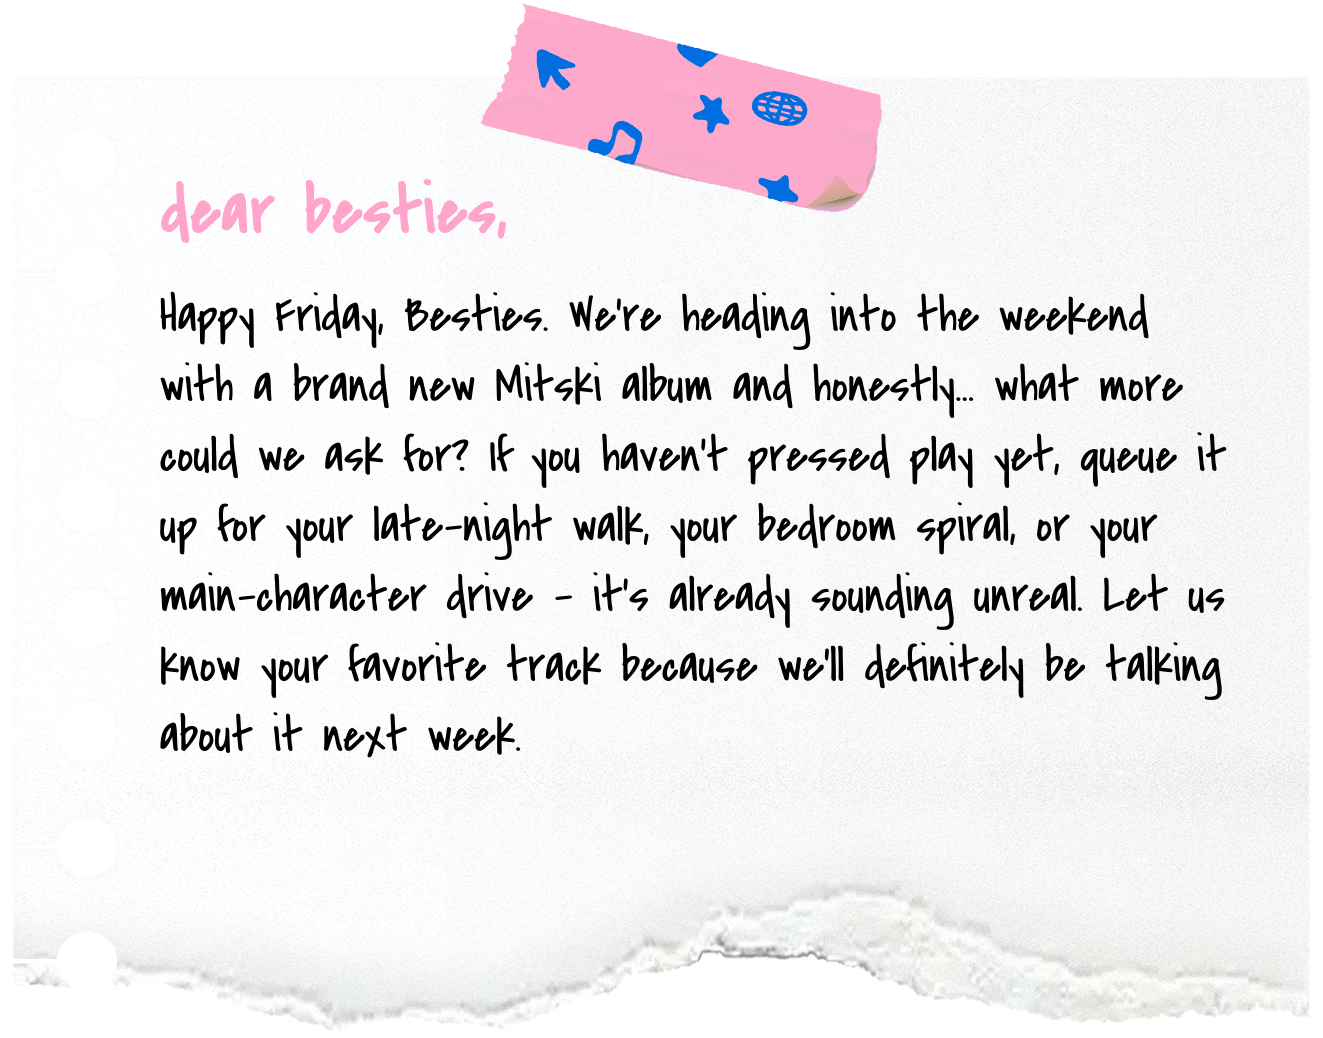 dear besties,
Happy Friday, Besties. We're heading into the weekend
with a brand new Mitski album and honestly... what more
could we ask for? If you haven't pressed play yet, queue it
up for your late-night walk, your bedroom spiral, or your
main-character drive - it's already sounding unreal. Let us
know your favorite track because we'll definitely be talking
about it next week.